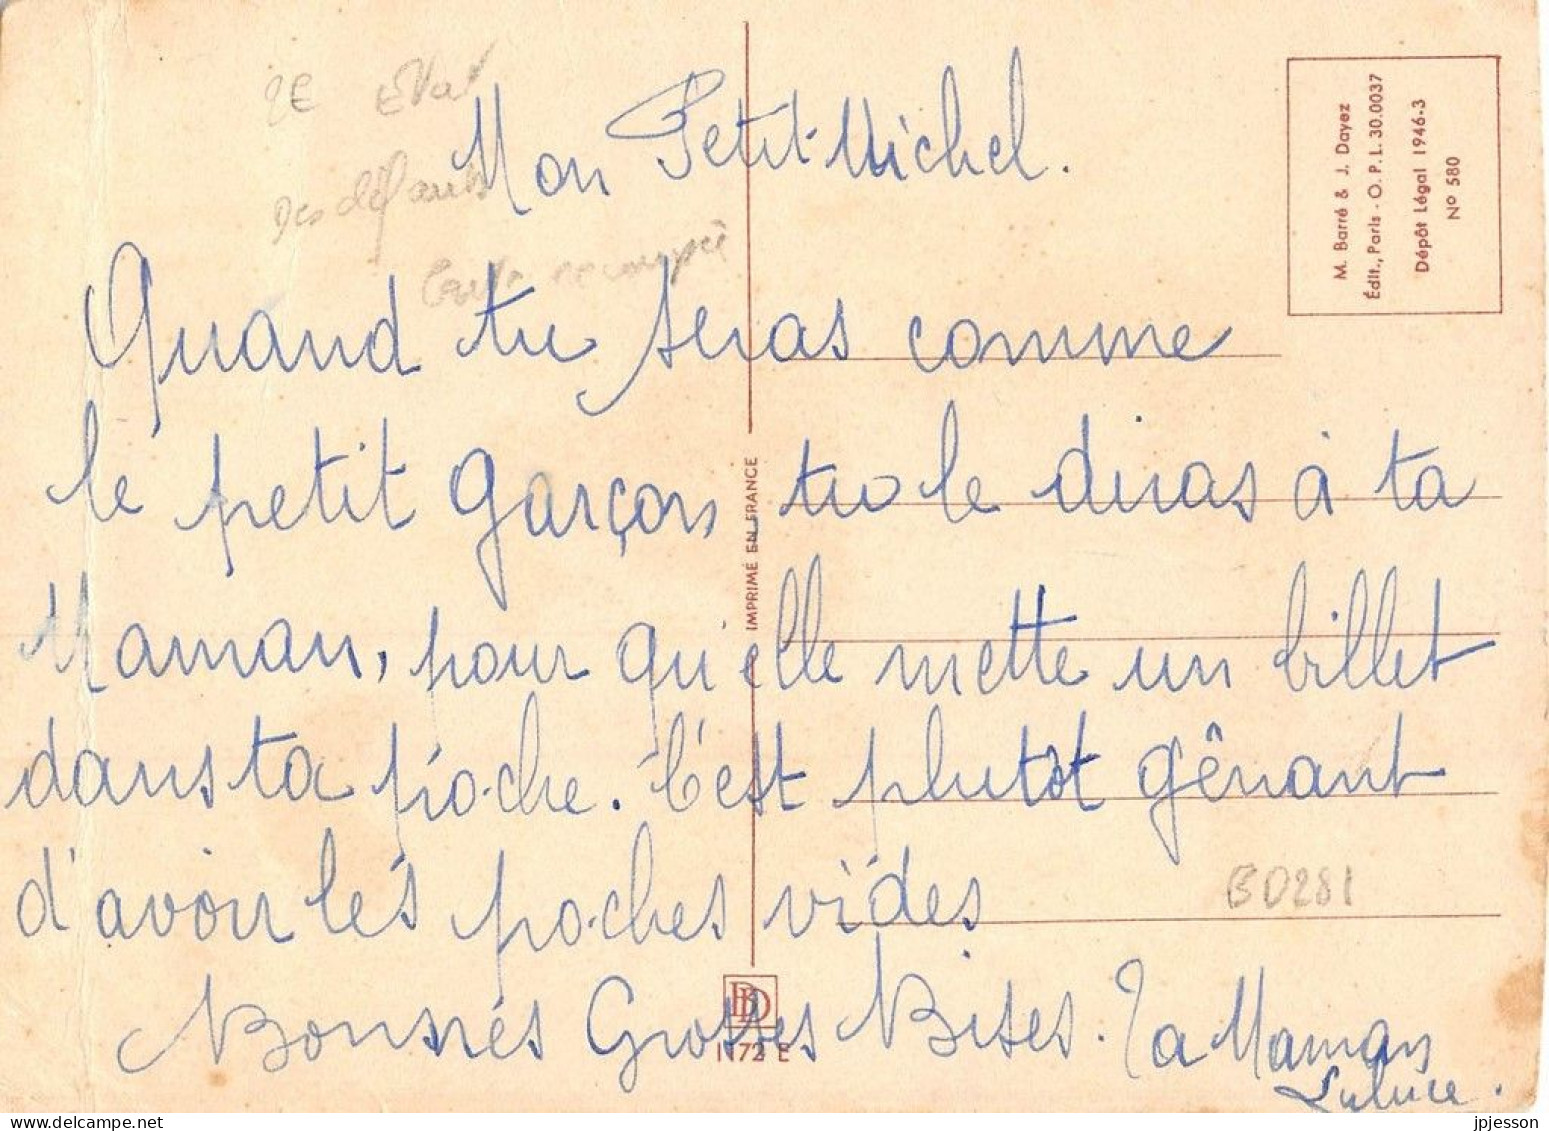 2E Etat
Des défauts
Mon Petit Michel.
Quand tu seras comme
le petit garçon, tu le diras à ta
Maman, pour qu'elle mette un billet
dans ta poche. C'est plutôt gênant
d'avoir les poches vides
Bonnes Grosses Bises. Ta Maman
M. Barré & J. Dayez
Édit., Paris - O. P. L. 30.0037
Dépôt Légal 1946-3
Nº 580
IMPRIMÉ EN FRANCE
BD281
BD
1172 E
jpjesson